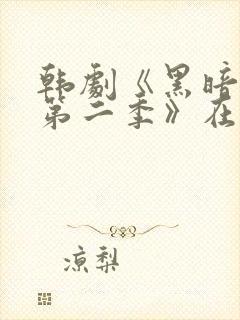 韩劇《黑暗
第二季》在
凉梨